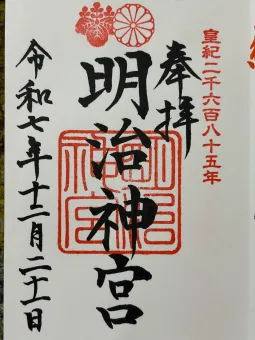 皇紀二千六百八十五年
奉拝
明治神宮
令和七年十二月二十一日